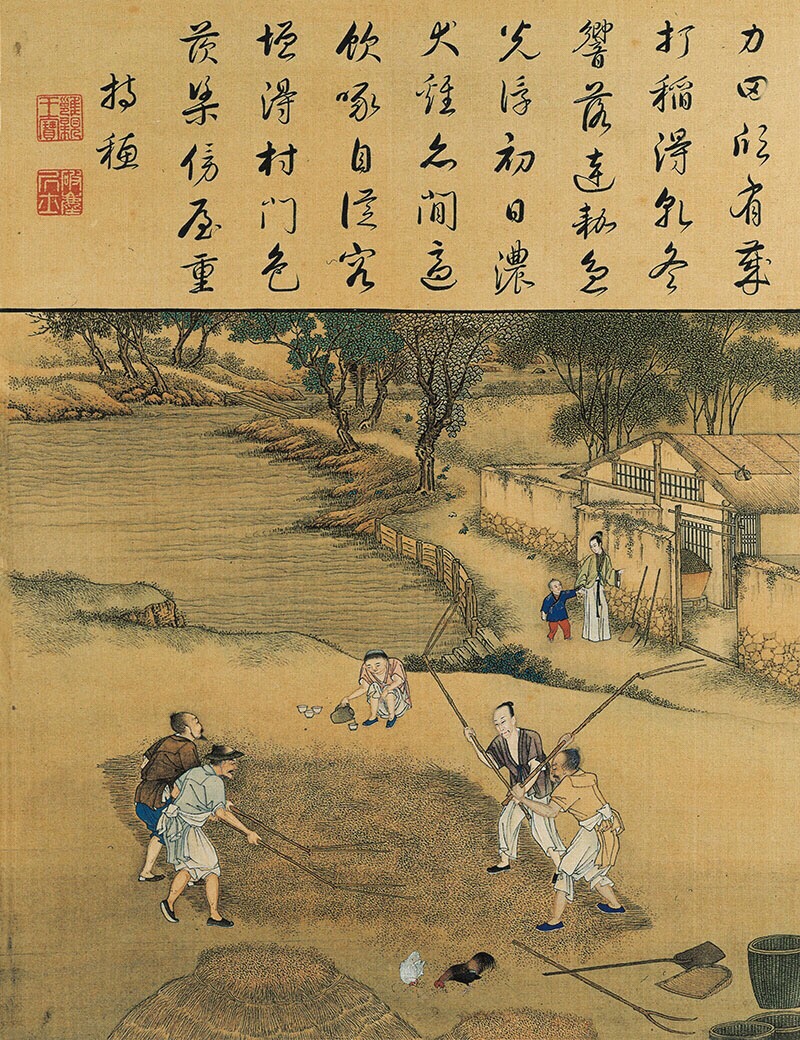 力田欣有歲
打稻得乘冬
響落連耞急
光浮初日濃
犬雞亦閒適
飲啄自從容
增得村門色
茨梁傍屋重
持穗
雍親王寶
破塵居士